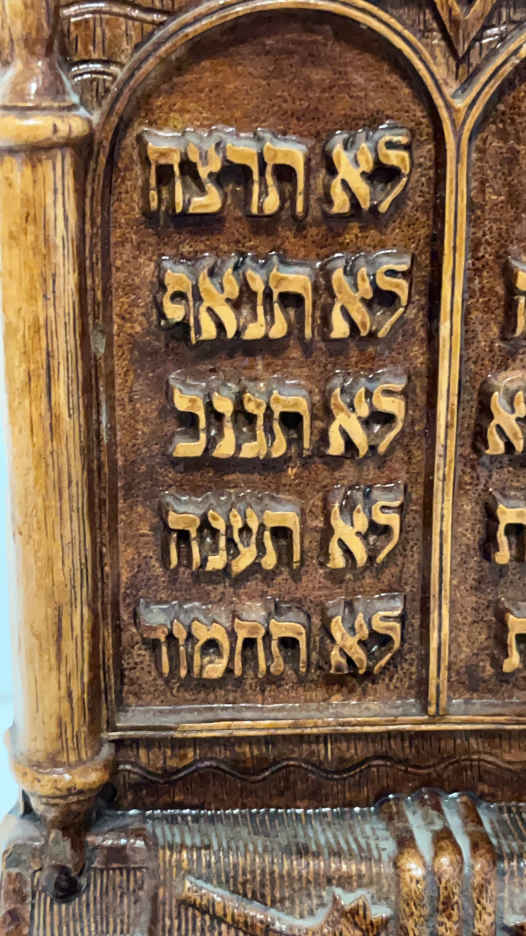 לא תרצח
לא תנאף
לא תגנב
לא תענה
לא תחמוד